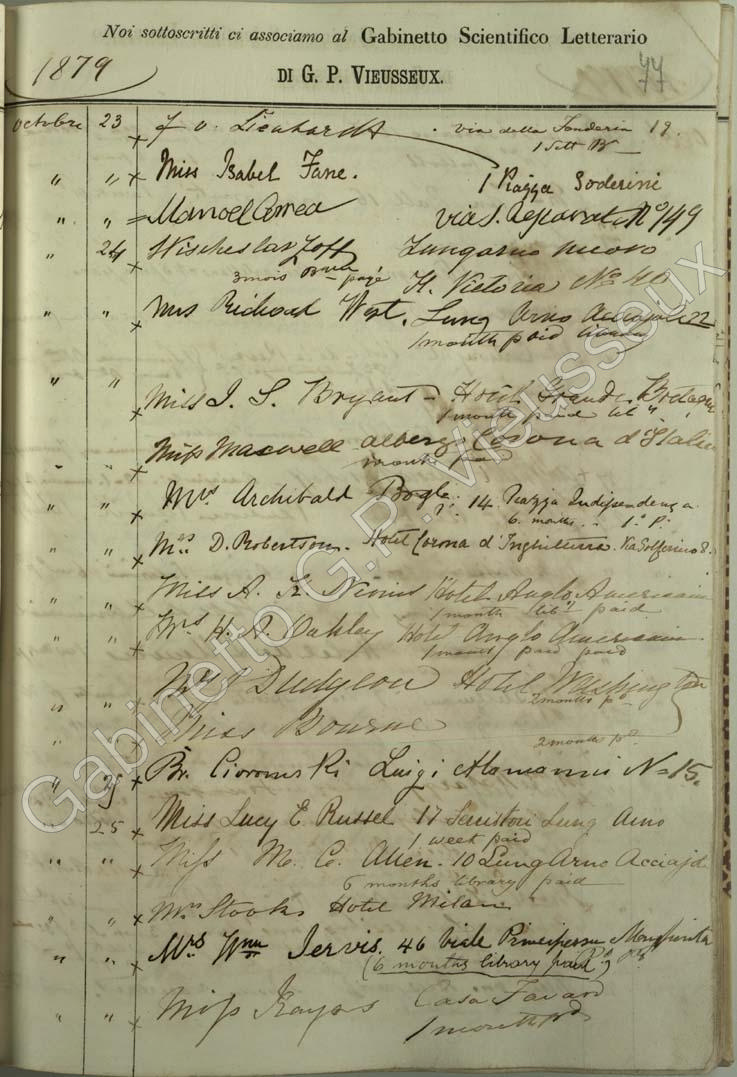 Noi sottoscritti ci associamo al Gabinetto Scientifico Letterario
1879
DI G. P. VIEUSSEUX.
77
Octobre 23 x J v. Lienhardt via della Fonderia 19.
1 Sett
" " x Miss Isabel Fane. 1 Piazza Soderini
" " = Manoel Correa via S. Reparata No 49
" 24 x Lungarno nuovo
3 mois payé H. Victoria No 40
" " x Mrs Richard West. Lung Arno Acciajoli 22
1 month paid library
" " x Miss J. S. Bryant - Hotel Grande Bretagne
1 month paid lib
" " x Miss Maxwell albergo Corona d'Italia
month paid
" " x Mrs Archibald Bogle. 14 Piazza Indipendenza
6 months. 1o P.
" " x Mrs D. Robertson. Hotel Corona d'Inghilterra. Via Solferino 8.
" " x Miss A. K. Nevins Hotel Anglo Americain
1 month lib paid
" " x Mrs H. A. Oakley Hotel Anglo Americain
1 month paid
" " x Dudgeon Hotel Washington
2 months pd
" " x Miss Bourne
2 months pd
" 25 x Br. Cioromski Luigi Alamanni No 15.
" 25 x Miss Lucy E. Russel 17 Serristori Lung Arno
1 week paid
" " x Miss M. C. Allen. 10 Lung Arno Acciajoli
6 months library paid
" " x Mrs Stooks Hotel Milan
" " x Mrs Wm Jervis. 46 Viale Principessa Margherita
(6 months library paid)
" " x Miss Casa Favard
1 month pd
Gabinetto G.P. Vieusseux